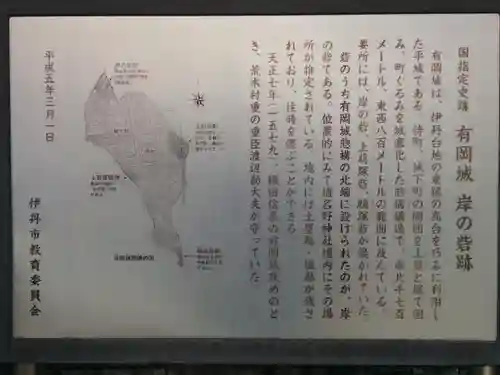 国指定史蹟 有岡城 岸の砦跡
有岡城は、伊丹台地の東縁の高台を巧みに利用し
た平城である。侍町、城下町の周囲を土塁と堀で囲
み、町ぐるみを城塞化した惣構構造で、南北千七百
メートル、東西八百メートルの範囲に及んでいる。
要所には、岸の砦、上﨟塚砦、鵯塚砦が築かれていた。
砦のうち有岡城惣構の北端に設けられたのが、岸
の砦である。位置的にみて猪名野神社境内にその場
所が推定されている。境内には土塁跡・堀跡が残さ
れており、往時を偲ぶことができる。
天正七年(一五七九)織田信長の有岡城攻めのと
き、荒木村重の重臣渡辺勘大夫が守っていた。
平成五年三月一日
伊丹市教育委員会